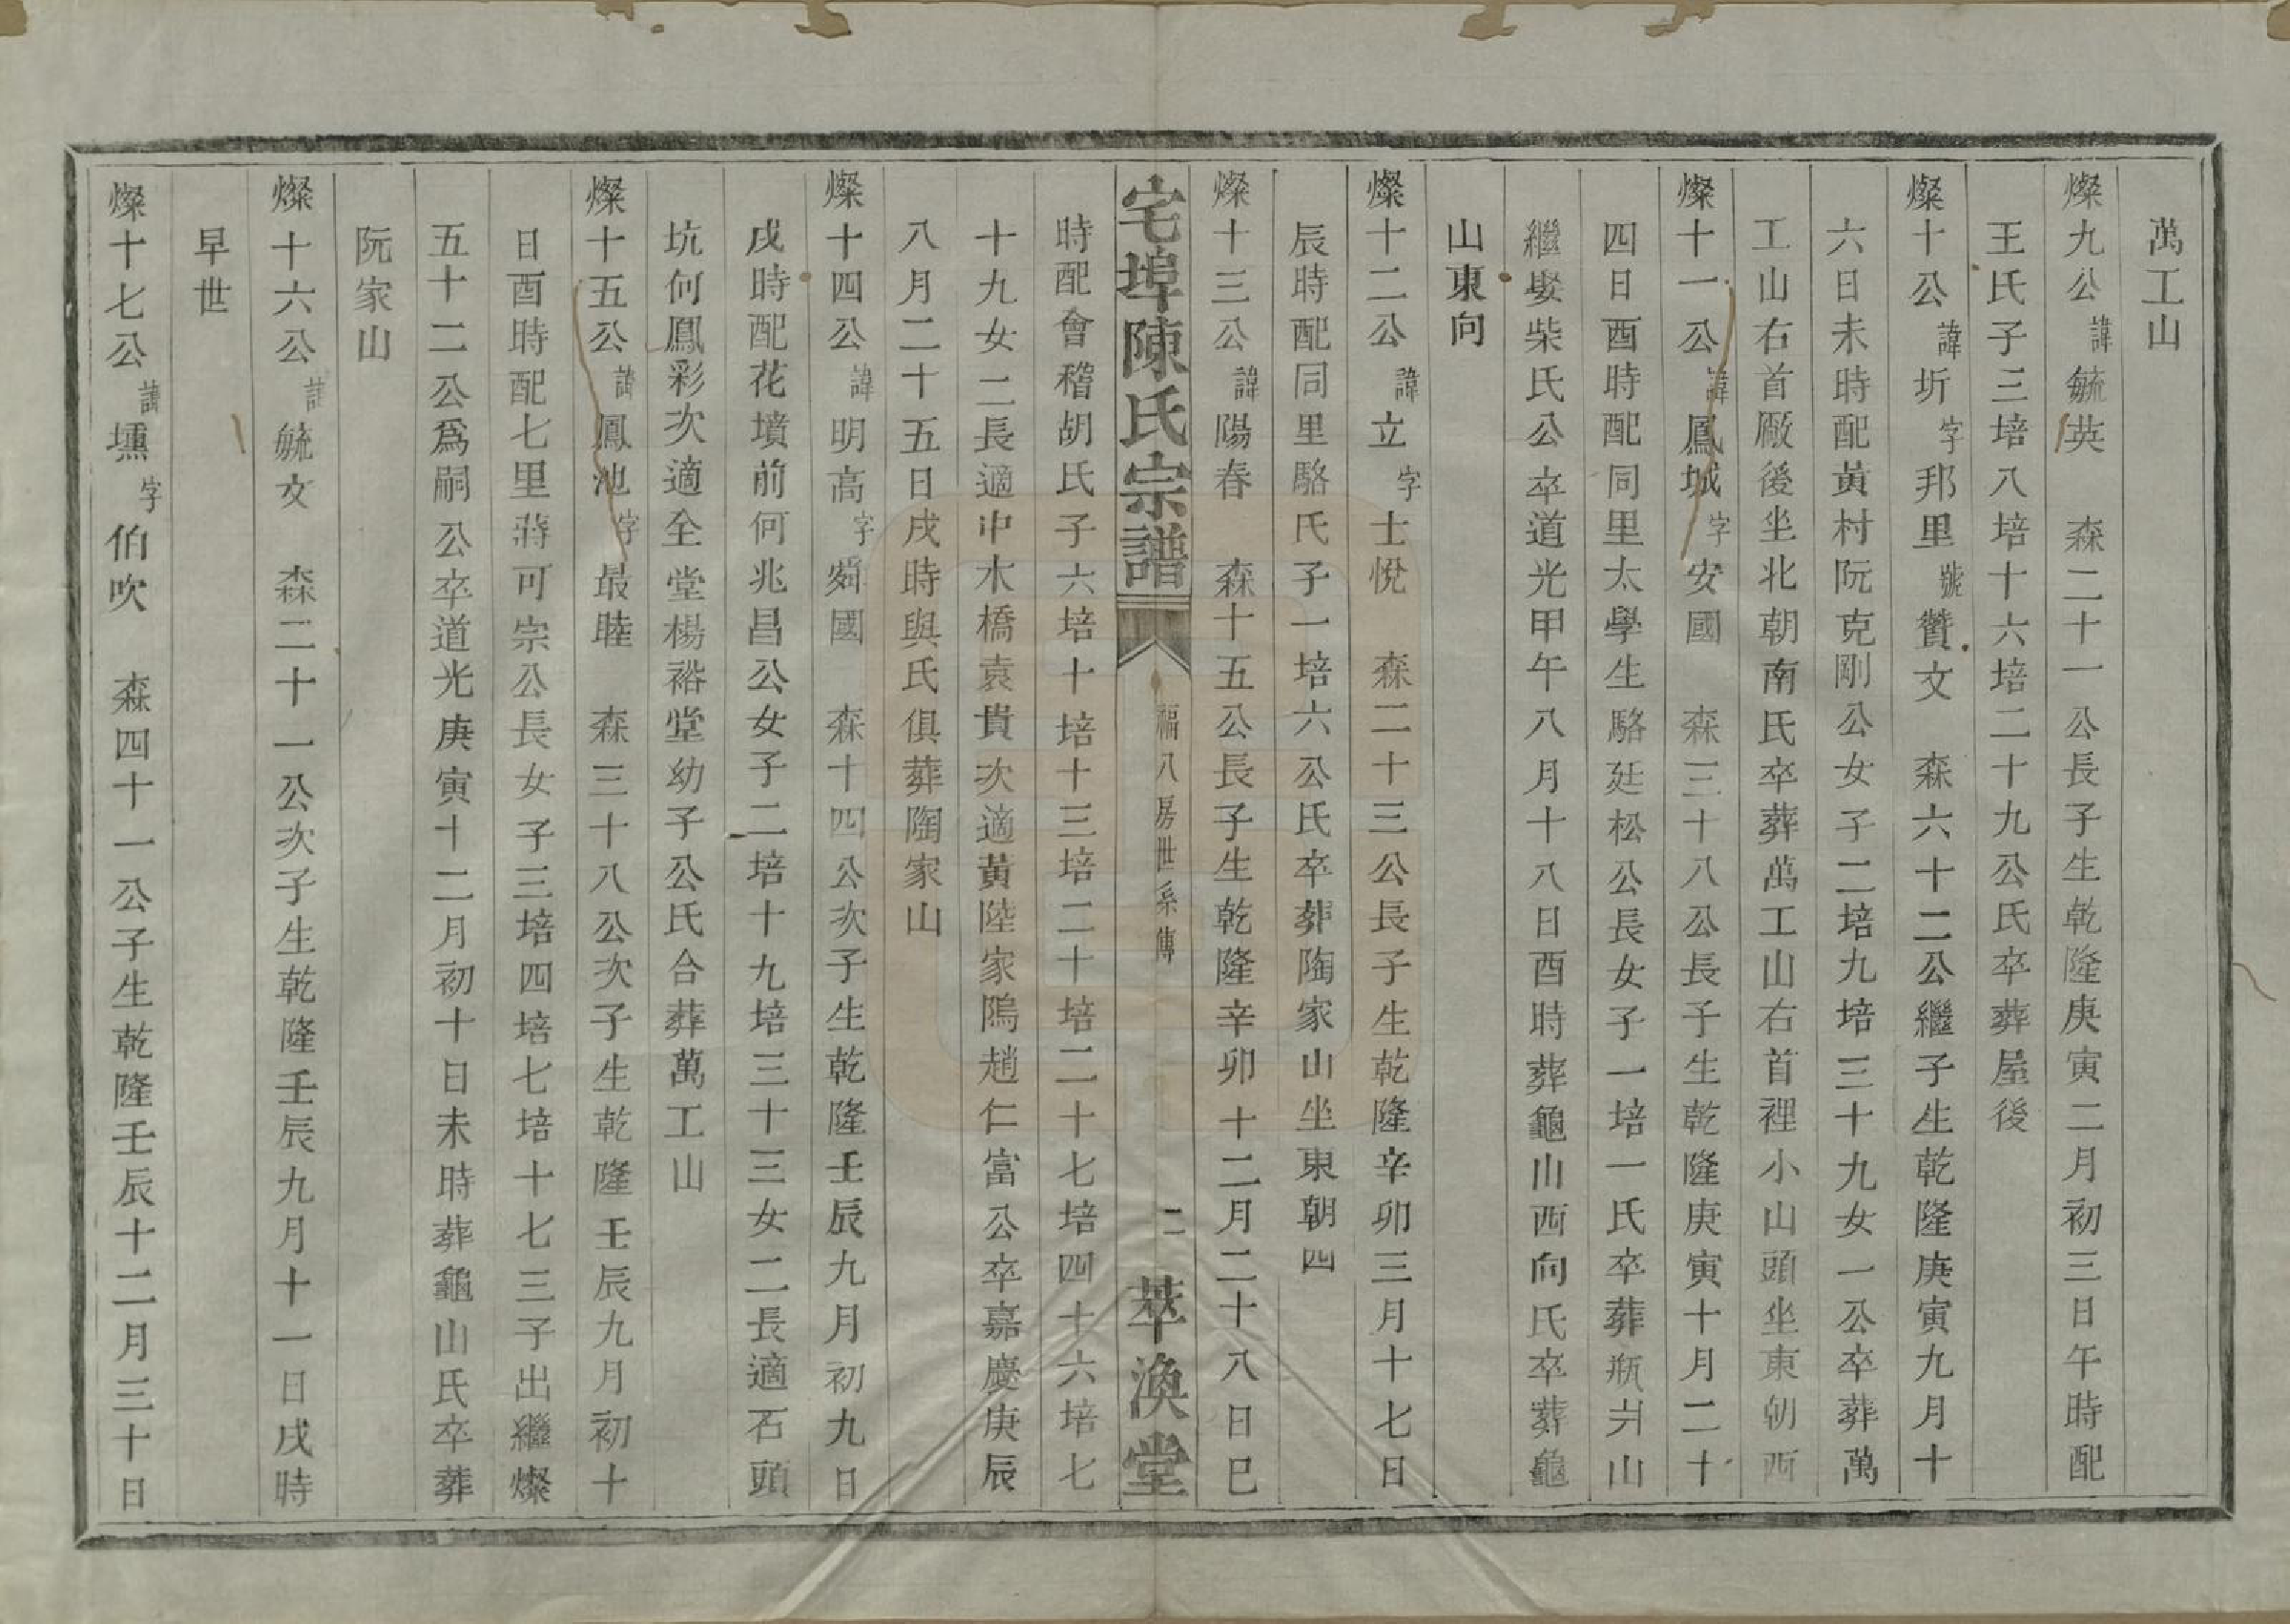 萬工山
燦九公諱毓英　森二十一公長子生乾隆庚寅二月初三日午時配
王氏子三培八培十六培二十九公氏卒葬屋後
燦十公諱圻字邦里號贊文　森六十二公繼子生乾隆庚寅九月十
六日未時配黃村阮克剛公女子二培九培三十九女一公卒葬萬
工山右首厰後坐北朝南氏卒葬萬工山右首裡小山頭坐東朝西
燦十一公諱鳳城字安國　森三十八公長子生乾隆庚寅十月二十
四日酉時配同里太學生駱廷松公長女子一培一氏卒葬瓶爿山
繼娶柴氏公卒道光甲午八月十八日酉時葬龜山西向氏卒葬龜
山東向
燦十二公諱立字士悅　森二十三公長子生乾隆辛卯三月十七日
辰時配同里駱氏子一培六公氏卒葬陶家山坐東朝四
燦十三公諱陽春　森十五公長子生乾隆辛卯十二月二十八日巳
宅埠陳氏宗譜　福八房世系傳　二　萃渙堂
時配會稽胡氏子六培十培十三培二十培二十七培四十六培七
十九女二長適中水橋袁貴次適黃陸家隝趙仁富公卒嘉慶庚辰
八月二十五日戌時與氏俱葬陶家山
燦十四公諱明高字舜國　森十四公次子生乾隆壬辰九月初九日
戌時配花墳前何兆昌公女子二培十九培三十三女二長適石頭
坑何鳳彩次適全堂楊裕堂幼子公氏合葬萬工山
燦十五公諱鳳池字最睦　森三十八公次子生乾隆壬辰九月初十
日酉時配七里蔣可宗公長女子三培四培七培十七三子出繼燦
五十二公爲嗣公卒道光庚寅十二月初十日未時葬龜山氏卒葬
阮家山
燦十六公諱毓文　森二十一公次子生乾隆壬辰九月十一日戌時
早世
燦十七公諱壎字伯吹　森四十一公子生乾隆壬辰十二月三十日